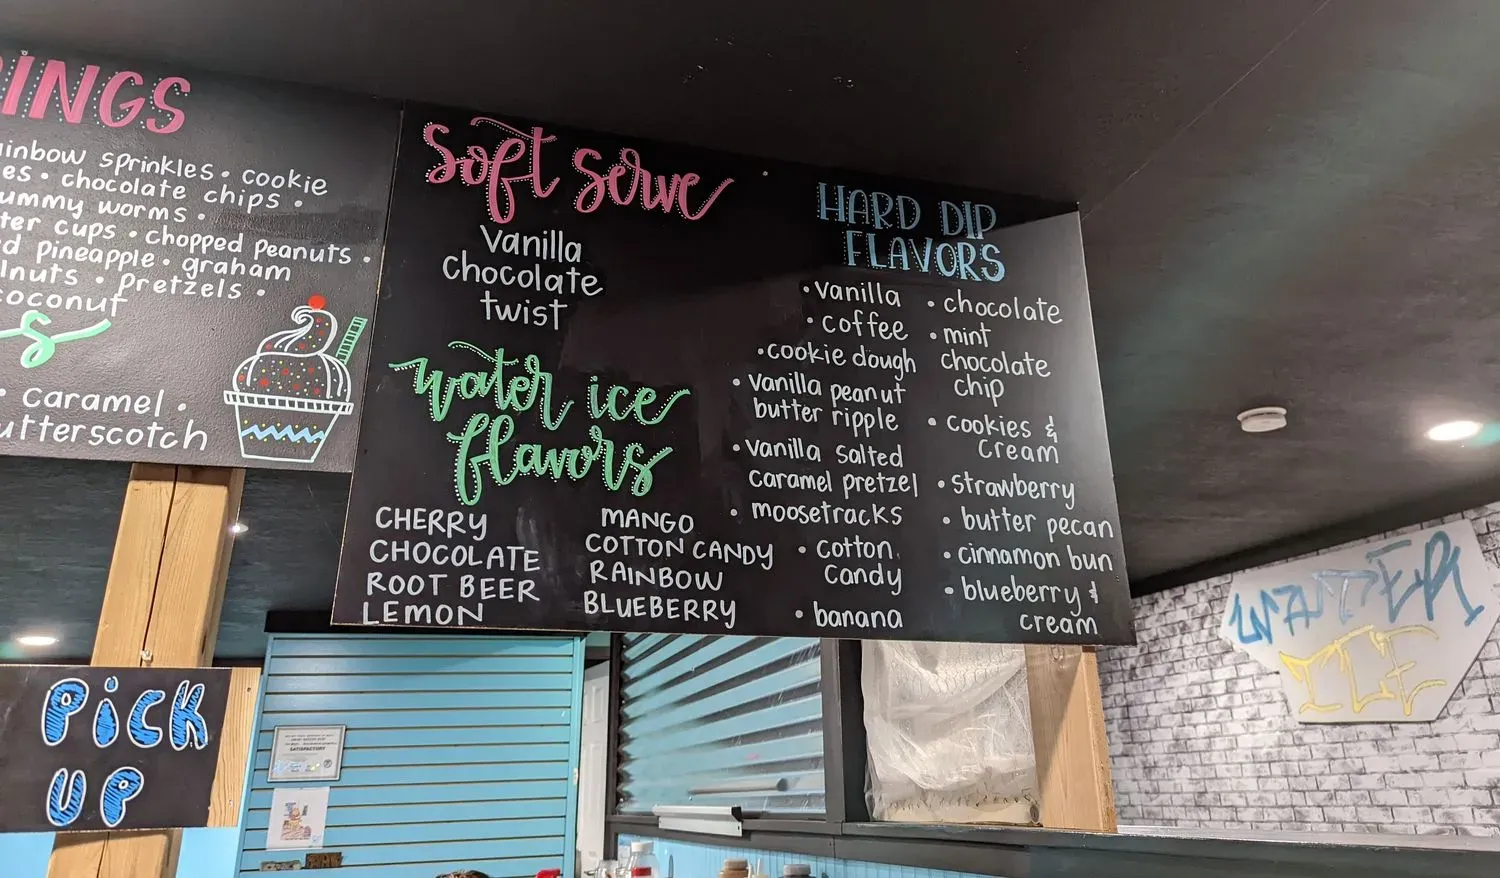 INGS
inbow sprinkles • cookie
es • chocolate chips •
ummy worms •
ter cups • chopped peanuts •
d pineapple • graham
lnuts • pretzels •
coconut
s
• caramel •
utterscotch
PICK
UP
Soft Serve
vanilla
chocolate
twist
water ice
flavors
CHERRY
CHOCOLATE
ROOT BEER
LEMON
MANGO
COTTON CANDY
RAINBOW
BLUEBERRY
HARD DIP
FLAVORS
• vanilla
• coffee
• cookie dough
• vanilla peanut
butter ripple
• vanilla salted
caramel pretzel
• moosetracks
• cotton
candy
• banana
• chocolate
• mint
chocolate
chip
• cookies &
cream
• strawberry
• butter pecan
• cinnamon bun
• blueberry &
cream
WATER
ICE
SATISFACTORY